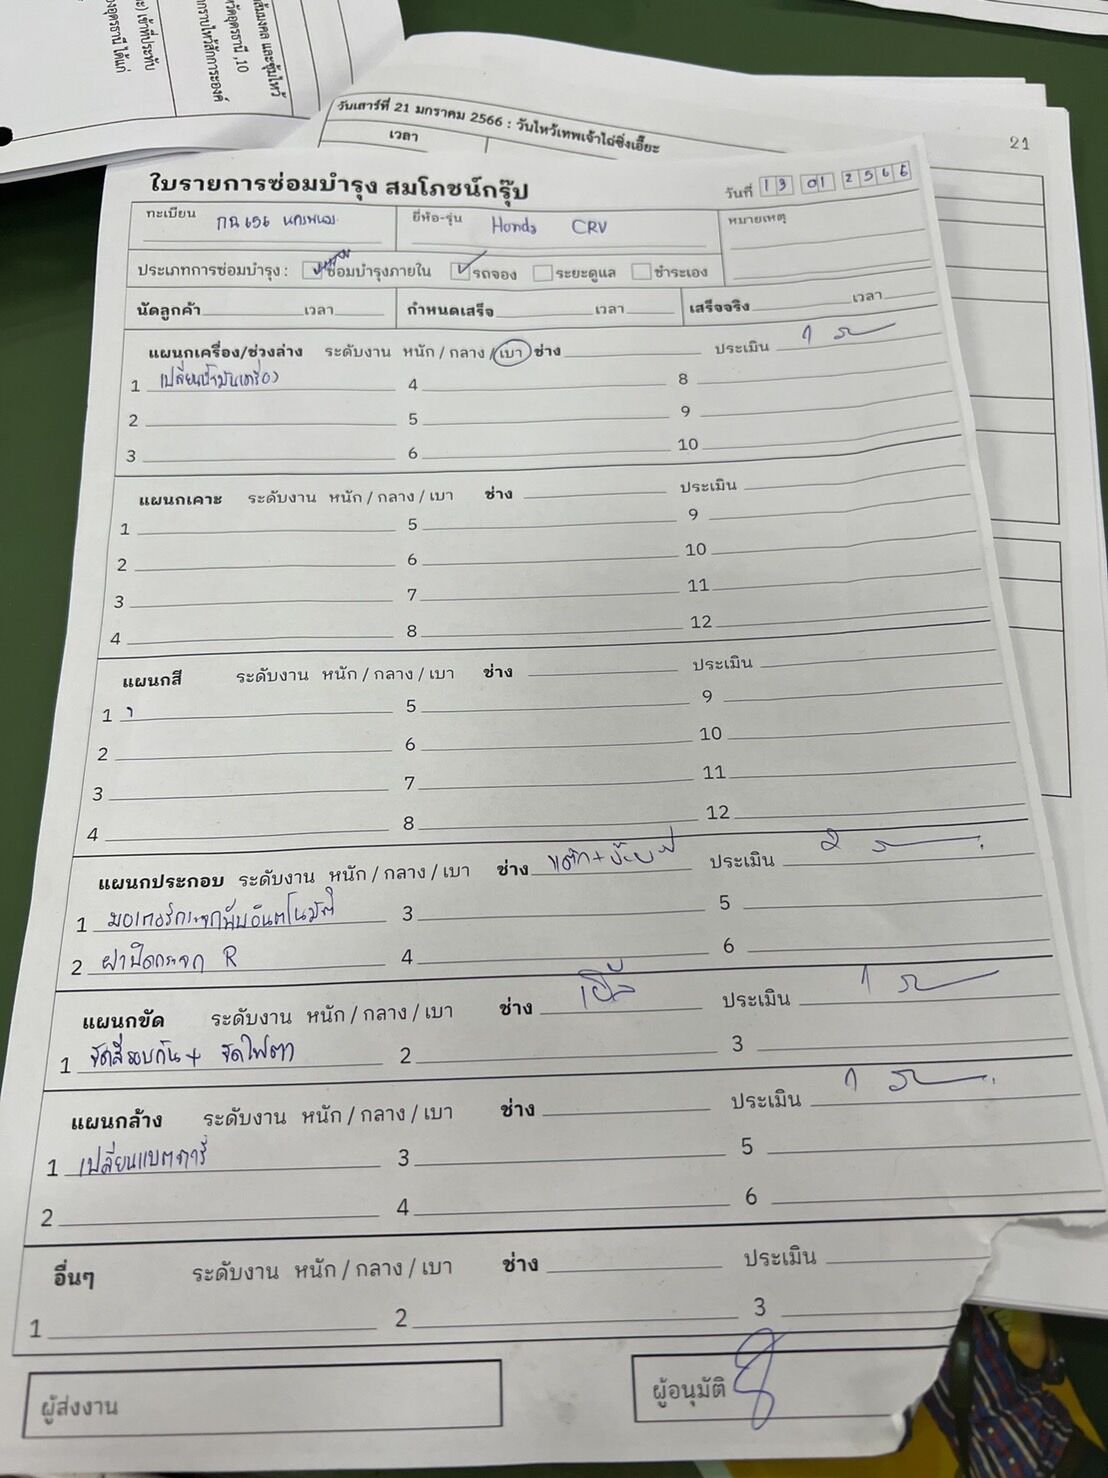 วันเสาร์ที่ 21 มกราคม 2566 : วันไหว้เทพเจ้าไฉ่ซิ่งเอี๊ยะ
เวลา
21
ใบรายการซ่อมบำรุง สมโภชน์กรุ๊ป
วันที่ 19 01 2566
ทะเบียน กฉ 656 นครพนม
ยี่ห้อ-รุ่น Honda CRV
หมายเหตุ
ประเภทการซ่อมบำรุง : ซ่อมบำรุงภายใน รถจอง ระยะดูแล ชำระเอง
นัดลูกค้า เวลา กำหนดเสร็จ เวลา เสร็จจริง เวลา
แผนกเครื่อง/ช่วงล่าง ระดับงาน หนัก / กลาง / เบา ช่าง ประเมิน 1
1 เปลี่ยนน้ำมันเครื่อง 4 8
2 5 9
3 6 10
แผนกเคาะ ระดับงาน หนัก / กลาง / เบา ช่าง ประเมิน
1 5 9
2 6 10
3 7 11
4 8 12
แผนกสี ระดับงาน หนัก / กลาง / เบา ช่าง ประเมิน
1 5 9
2 6 10
3 7 11
4 8 12
แผนกประกอบ ระดับงาน หนัก / กลาง / เบา ช่าง ประเมิน 2
1 มอเตอร์กระจกพับอัตโนมัติ 3 5
2 ฝาปิดกระจก R 4 6
แผนกขัด ระดับงาน หนัก / กลาง / เบา ช่าง ประเมิน 1
1 ขัดสีรอบคัน + ขัดไฟตา 2 3
แผนกล้าง ระดับงาน หนัก / กลาง / เบา ช่าง ประเมิน 1
1 เปลี่ยนแบตตารี่ 3 5
2 4 6
อื่นๆ ระดับงาน หนัก / กลาง / เบา ช่าง ประเมิน
1 2 3
ผู้ส่งงาน
ผู้อนุมัติ